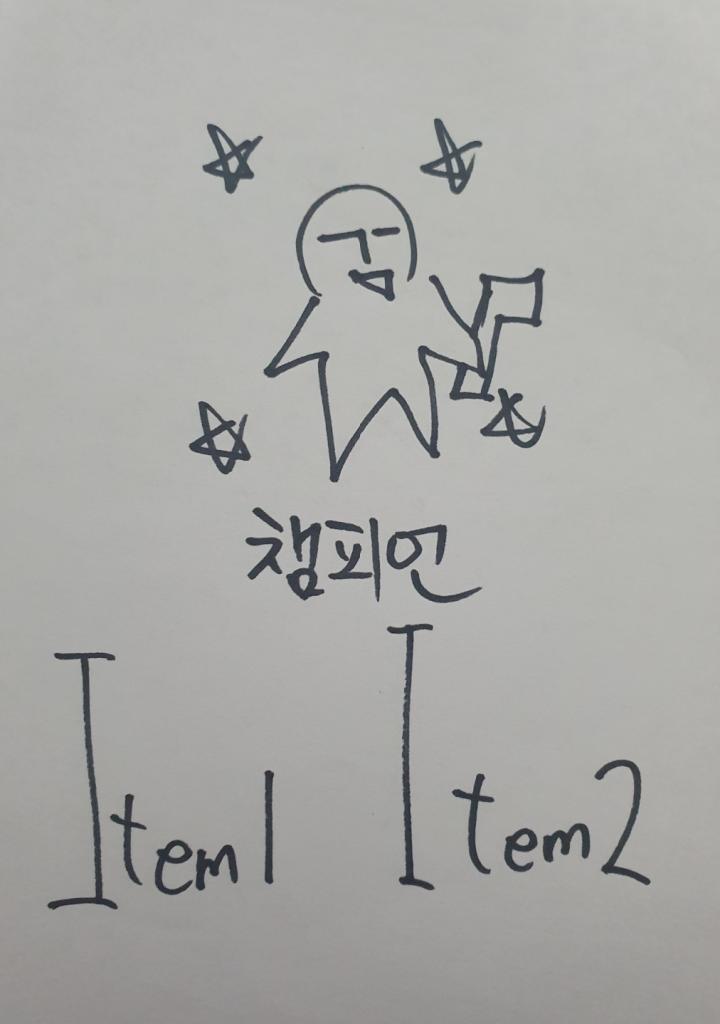 챔피언
Item1 Item2